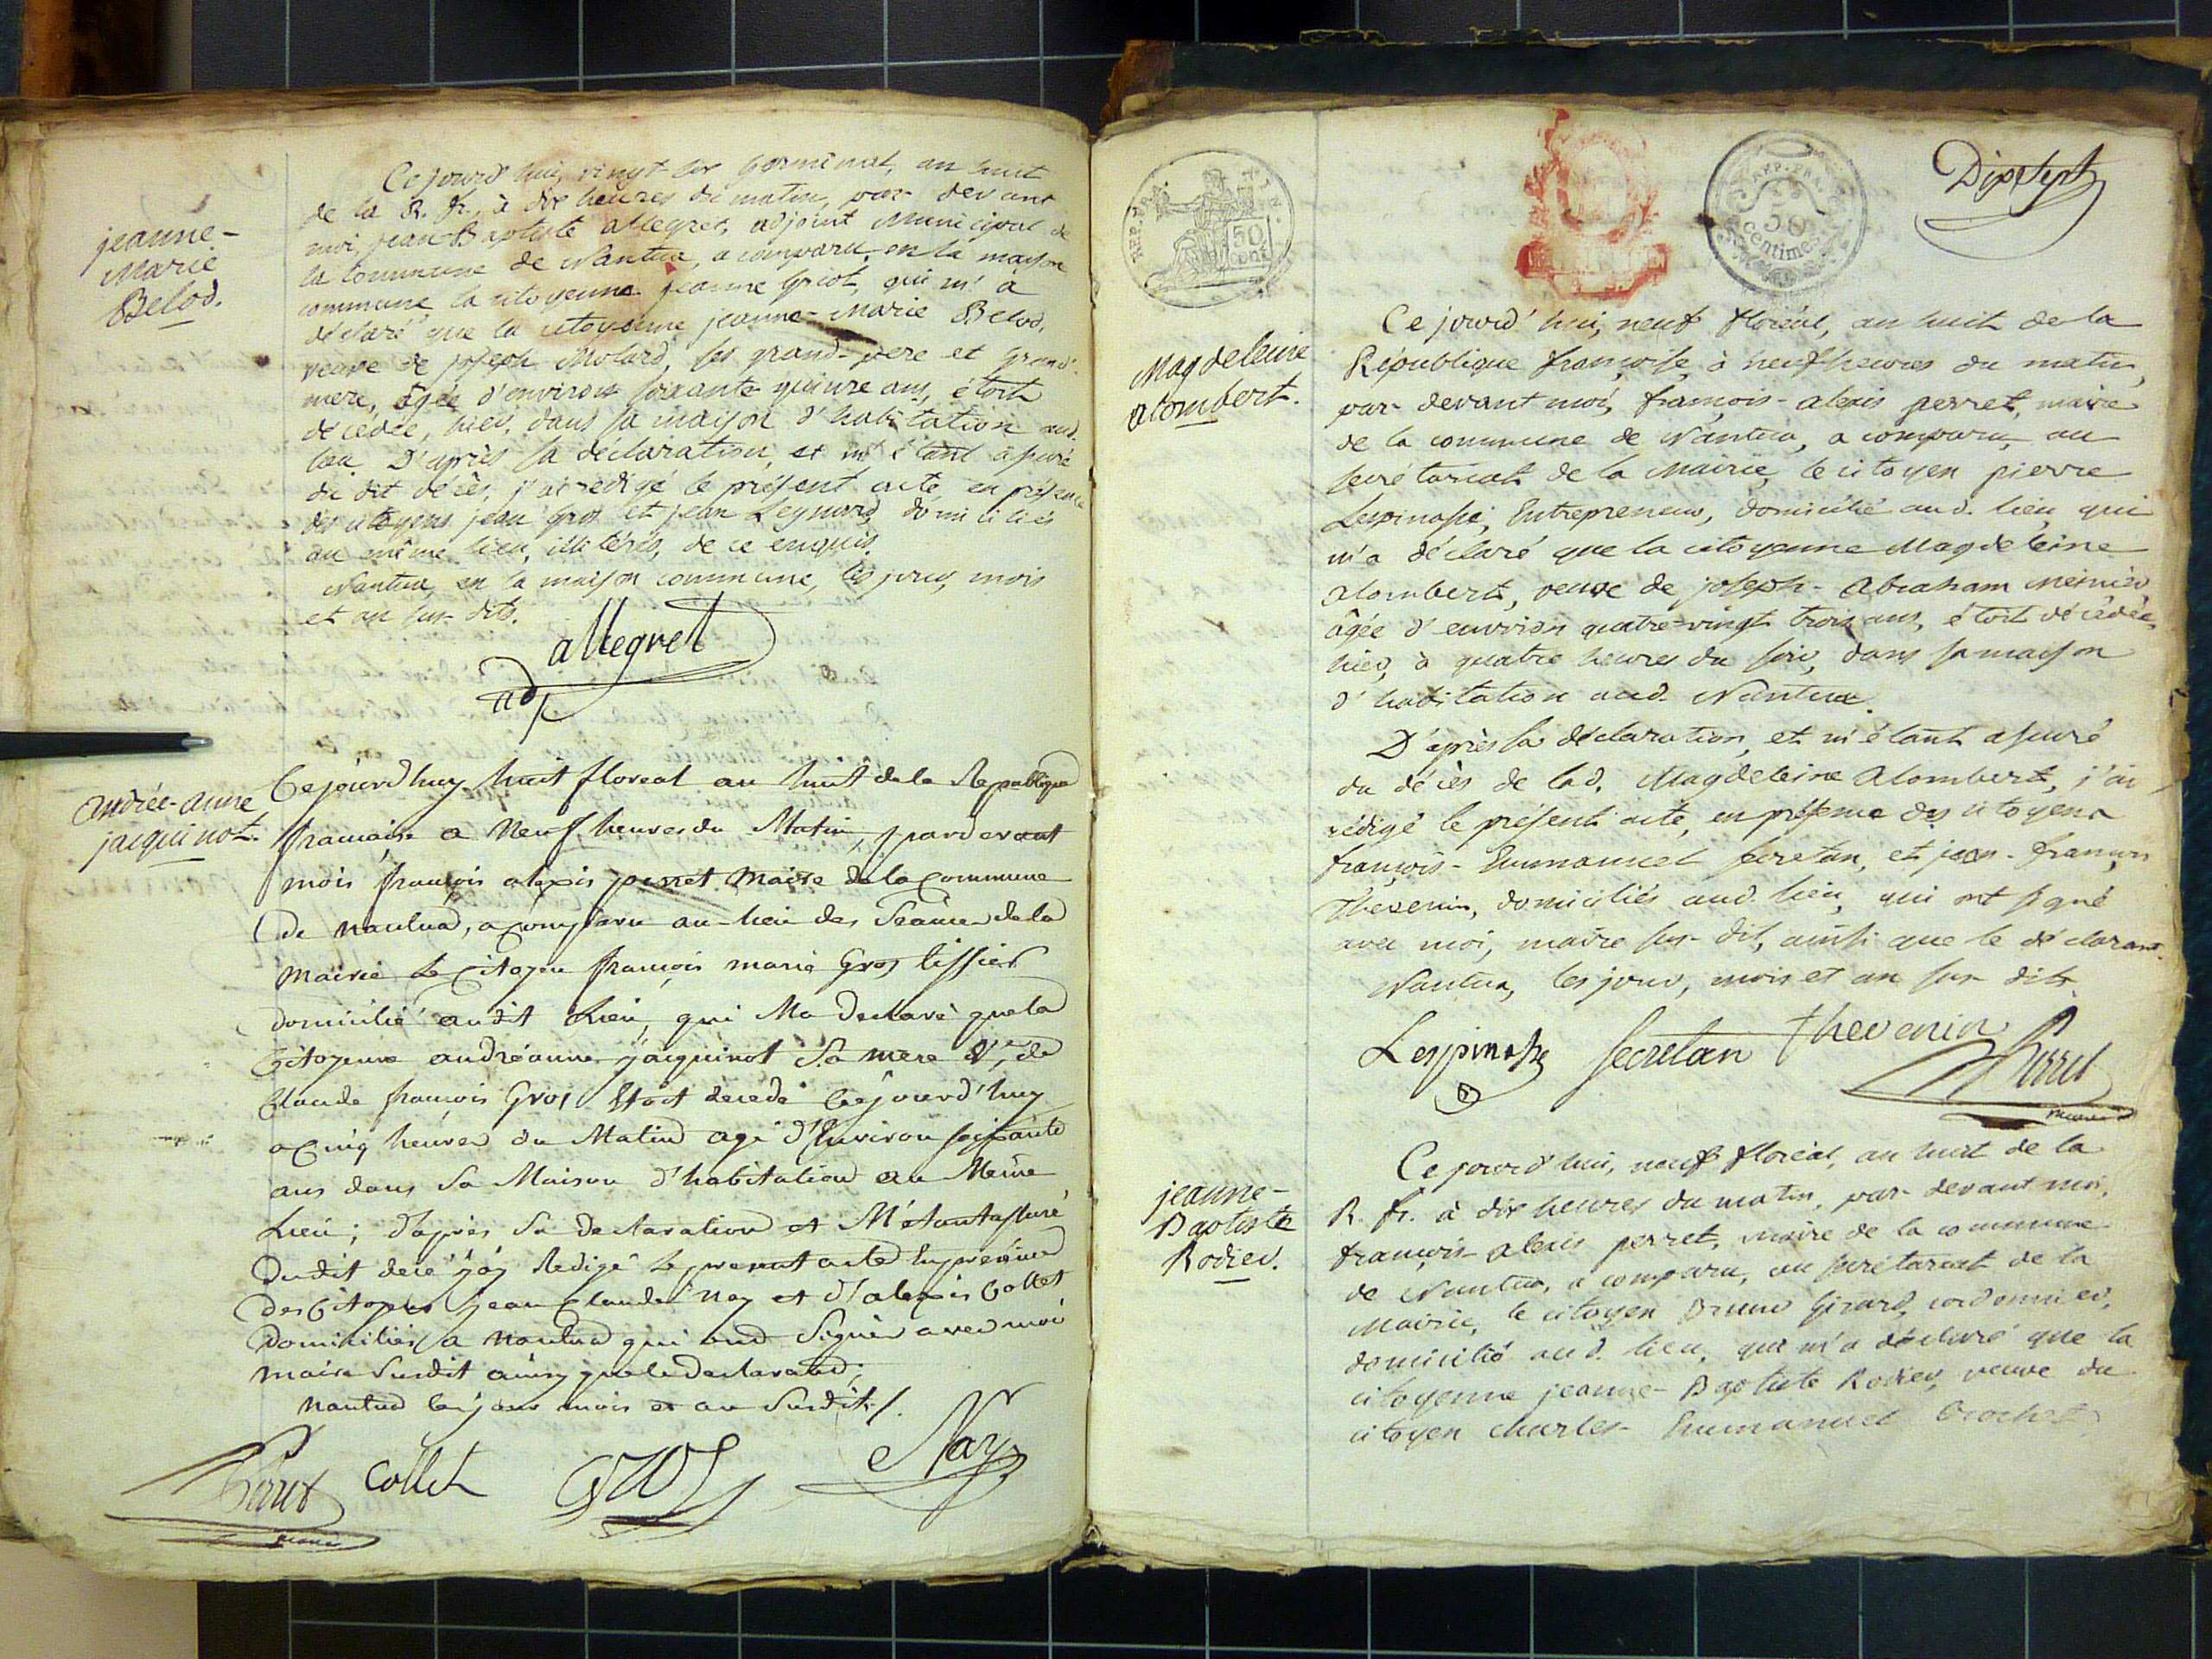 jeanne-
Marie
Belod.
Ce jourd'hui, vingt six Germinal, an huit
de la R. fr., à dix heures du matin, par-devant
moi jean-Baptiste allegret, adjoint Municipal de
la Commune de Nantua, a comparu, en la maison
commune la citoyenne jeanne Griot, qui m'a
déclaré que la citoyenne jeanne-Marie Belod,
veuve de joseph Molard, ses grand-pere et Grand-
mere, âgée d'environ soixante quinze ans, étoit
décédée, hier, dans sa maison d'habitation aud.
lieu. D'après sa déclaration, et m'étant assuré
du dit décès, j'ai rédigé le présent acte, en présence
des citoyens jean Gros et jean Leynard, domiciliés
au même lieu, illitérés, de ce enquis.
Nantua, en la maison commune, les jour, mois
et an sus-dits.
allegret
adj.
andrée-anne
jacquinot.
Cejourdhuy huit floreal an huit de la Republique
francaise a Neuf heures du Matin, pardevant
mois françois alexis perret Maire de la Commune
de nantua, a comparu au-lieu des Seances de la
Mairie Le Citoyen françois marie Gros tissier
domicilié audit Lieu, qui Ma Declaré que la
Citoyenne andréanne jacquinot Sa mere Vve de
Claude françois Gros Etoit decedé Cejourd'huy
a Cinq heures du Matin agé d'Environ soixante
ans dans Sa Maison d'habitation au Même
Lieu; d'après Sa Declaration et M'étant assuré
Dudit décé j'ay Redigé Le present acte En presence
Des Citoyens Jean Claude Nay et D'alexis Collet
Domiciliés a Nantua qui ont Signés avec moi
maire Susdit ainsy que le Declarant;
Nantua les jour mois et an Susdits/.
Perret Collet Gros Nay
maire
REP. FRA.
50
cent.
REP. FRA.
50
centimes
Dix Sept
Magdeleine
alombert.
Ce jourd'hui, neuf floréal, an huit de la
République françoise, à neuf heures du matin,
par-devant moi, françois-alexis perret, maire
de la commune de Nantua, a comparu, au
secrétariat de la Mairie, le citoyen pierre
Lespinasse, Entrepreneur, domicilié aud. lieu, qui
m'a déclaré que la citoyenne Magdeleine
alombert, veuve de joseph-Abraham
âgée d'environ quatre-vingt trois ans, étoit décédée,
hier, à quatre heures du soir, dans sa maison
d'habitation aud. Nantua.
D'après sa déclaration, et m'étant assuré
du décès de lad. Magdeleine Alombert, j'ai
rédigé le présent acte, en présence des citoyens
françois-Emmanuel secretan, et jean-françois
Thevenin, domiciliés aud. lieu, qui ont signé
avec moi, maire sus-dit, ainsi que le déclarant.
Nantua, les jour, mois et an sus-dits
Lespinasse secretan thevenin Perret
maire
jeanne-
Baptiste
Rodier.
Ce jourd'hui, neuf floréal, an huit de la
R. fr. à dix heures du matin, par-devant moi,
françois-alexis perret, maire de la commune
de Nantua, a comparu, au secrétariat de la
Mairie, le citoyen Bruno Girard, cordonnier,
domicilié aud. lieu, qui m'a déclaré que la
citoyenne jeanne-Baptiste Rodier, veuve du
citoyen charles-Emmanuel Crochet